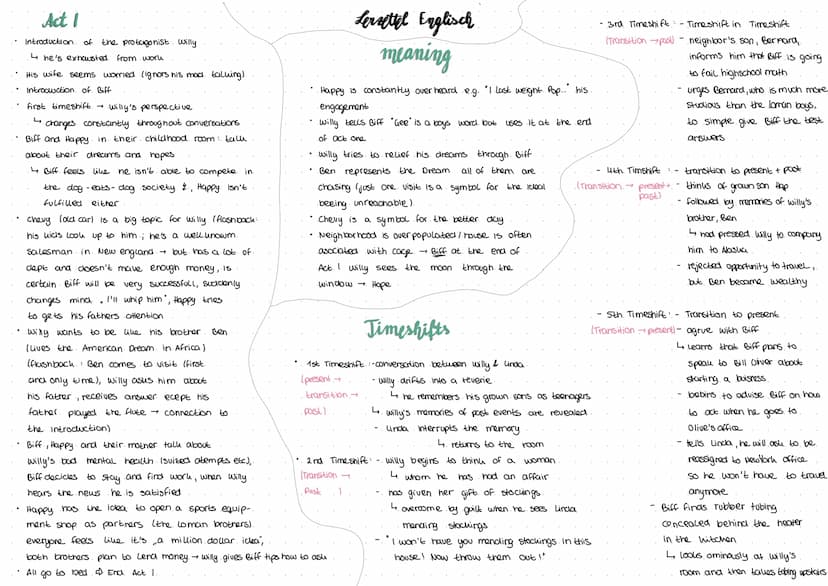 Act 1
· Introduction of the protagonist Willy
↳ he's exhausted from work
· His wife seems worried (ignors his mad talking)
· Introduction of Biff
· First timeshift → Willy's perspective
↳ changes constantly throughout conversations
· Biff and Happy in their childhood room: talk
about their dreams and hopes
↳ Biff feels like he isn't able to compete in
the dog-eats-dog society &, Happy isn't
fulfilled either
· Chevy (old car) is a big topic for Willy (flashback:
his kids look up to him; he's a well known
salesman in New england → but has a lot of
dept and doesn't make enough money, is
certain Biff will be very successfull, suddenly
changes mind „I'll whip him", Happy tries
to gets his fathers attention
· Willy wants to be like his brother Ben
(lives the American Dream in Africa)
(flashback: Ben comes to visit (first
and only time), Willy asks him about
his father, receives answer ecept his
father played the flute → connection to
the introduction)
· Biff, Happy and their mother talk about
Willy's bad mental health (suized atempts etc),
Biff decides to stay and find work, when Willy
hears the news he is satisfied
· Happy has the idea to open a sports equip-
ment shop as partners (the Loman brothers)
everyone feels like it's „a million dollar idea",
both brothers plan to lend money → Willy gives Biff tips how to ask
· All go to bed ⇨ End Act 1
Lernzettel Englisch
meaning
· Happy is constantly overheard e.g. "I lost weight Pop.." his
engagement
· Willy tells Biff "Gee" is a boys word but uses it at the end
of act one
· Willy tries to relief his dreams through Biff
· Ben represents the Dream all of them are
chasing (just one visit is a symbol for the ideal
beeing unreachable)
· Chevy is a symbol for the better day
· Neighborhood is overpopulated / house is often
asociated with cage → Biff at the end of
Act 1 Willy sees the moon through the
window → Hope
Timeshifts
· 1st Timeshift: - conversation between willy & Linda
(present →
transition →
past)
- Willy drifts into a reverie
↳ he remembers his grown sons as teenagers
↳ Willy's memories of past events are revealed
- Linda interrupts the memory
↳ returns to the room
· 2nd Timeshift: - Willy begins to think of a woman
(Transition →
Past )
↳ whom he has had an affair
- has given her gift of stockings
↳ overcome by guilt when he sees Linda
mending stockings
- "I won't have you mending stockings in this
house! Now throw them out!"
- 3rd Timeshift: - Timeshift in Timeshift
(Transition → past)
- neighbor's son, Bernard,
informs him that Biff is going
to fail highschool math
- urges Bernard, who is much more
studious than the loman boys,
to simple give Biff the test
answers
- 4th Timshift: - transition to present + past
(Transition → present +
past)
- thinks of grown son Hap
- followed by memories of willy's
brother, Ben
↳ had pressed Willy to company
him to Alaska
- rejected opportunity to travel,
but Ben became wealthy
- 5th Timeshift: - Transition to present
(Transition → present)
- agrue with Biff
↳ Learns that Biff plans to
speak to Bill Oliver about
starting a buisness
- beginns to advise Biff on how
to act when he goes to
Olive's office
- tells Linda, he will ask to be
reassigned to newYork office
so he won't have to travel
anymore
- Biff finds rubber tubing
concealed behind the heater
in the kitchen
↳ Looks ominously at Willy's
room and then takes tubing upstairs